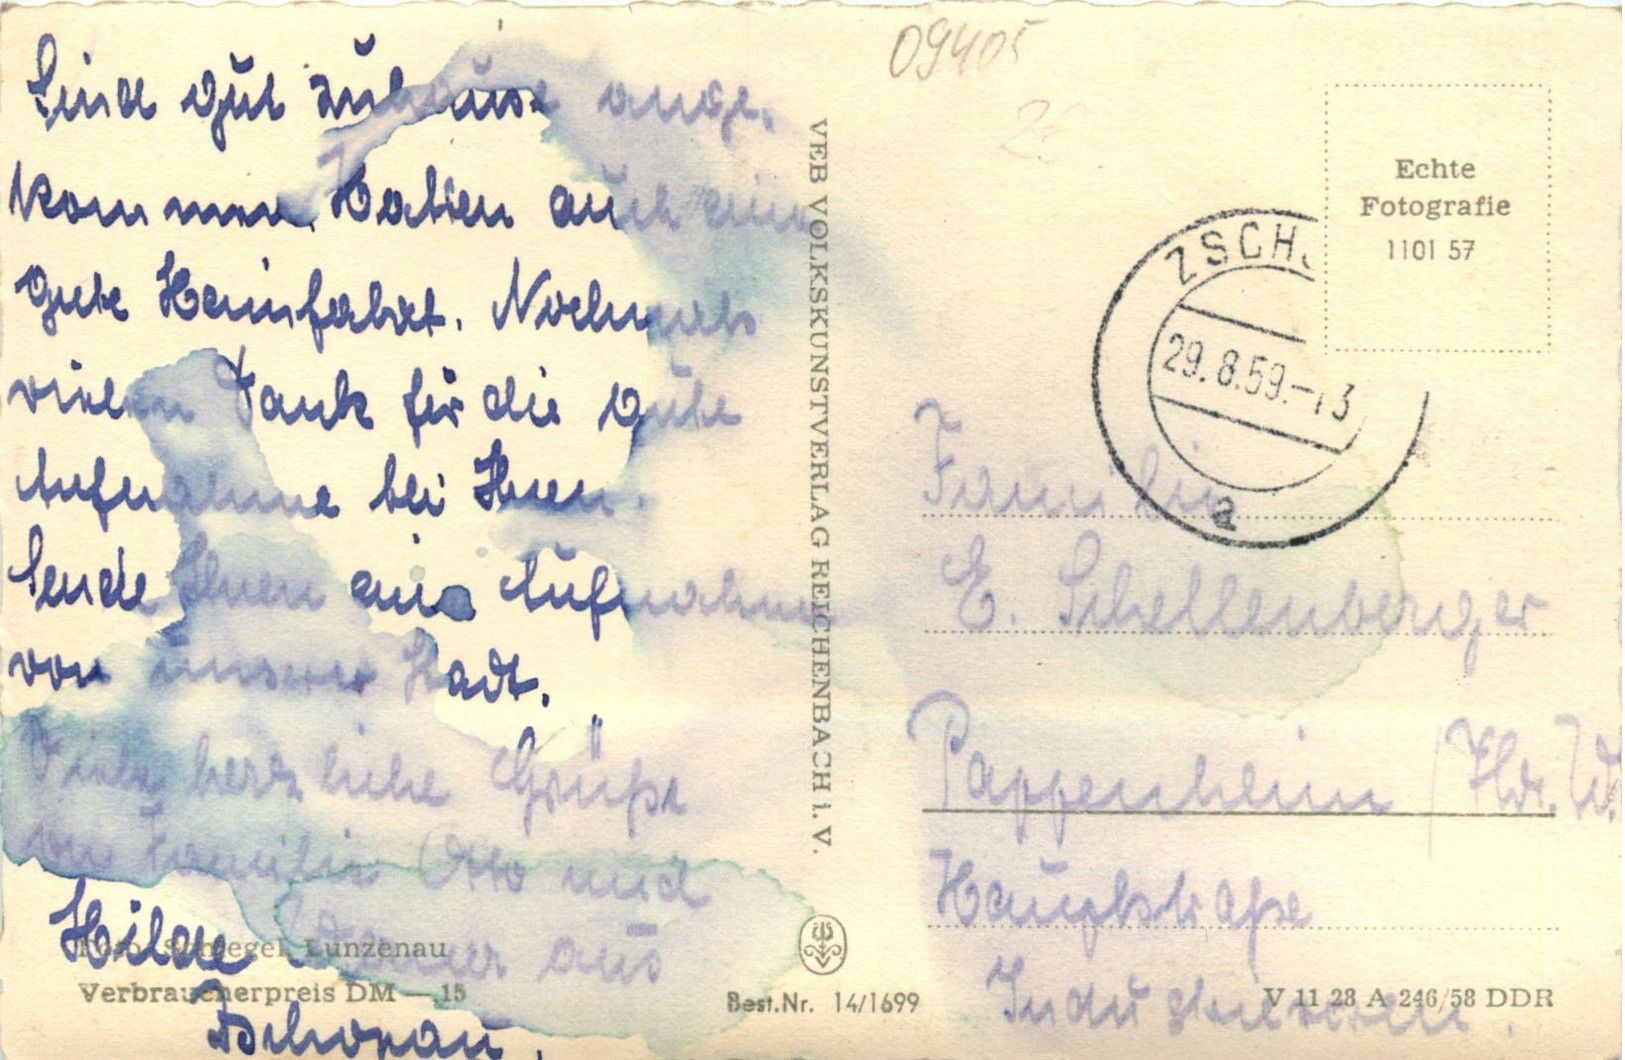 Sind gut zuhause ange.
kommen. Haben auch eine
gute Heimfahrt. Nochmals
vielen Dank für die gute
Aufnahme bei Ihnen.
Sende Ihnen eine Aufnahme
von unserer Stadt.
Viele herzliche Grüße
von Familie Otto und
Hilde aus
Zschopau.
Foto: Schlegel, Lunzenau
Verbraucherpreis DM —,15
VEB VOLKSKUNSTVERLAG REICHENBACH i. V.
Best.Nr. 14/1699
09405
Echte
Fotografie
1101 57
ZSCH
29.8.59.-13
a
Familie
E. Schellenberger
Pappenheim / Thür. Wd.
Hauptstraße
V 11 28 A 246/58 DDR